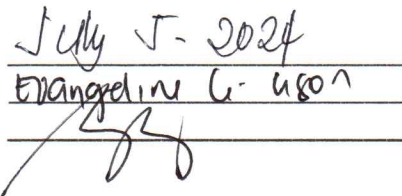 July 5- 2024
Evangeline G. Uson